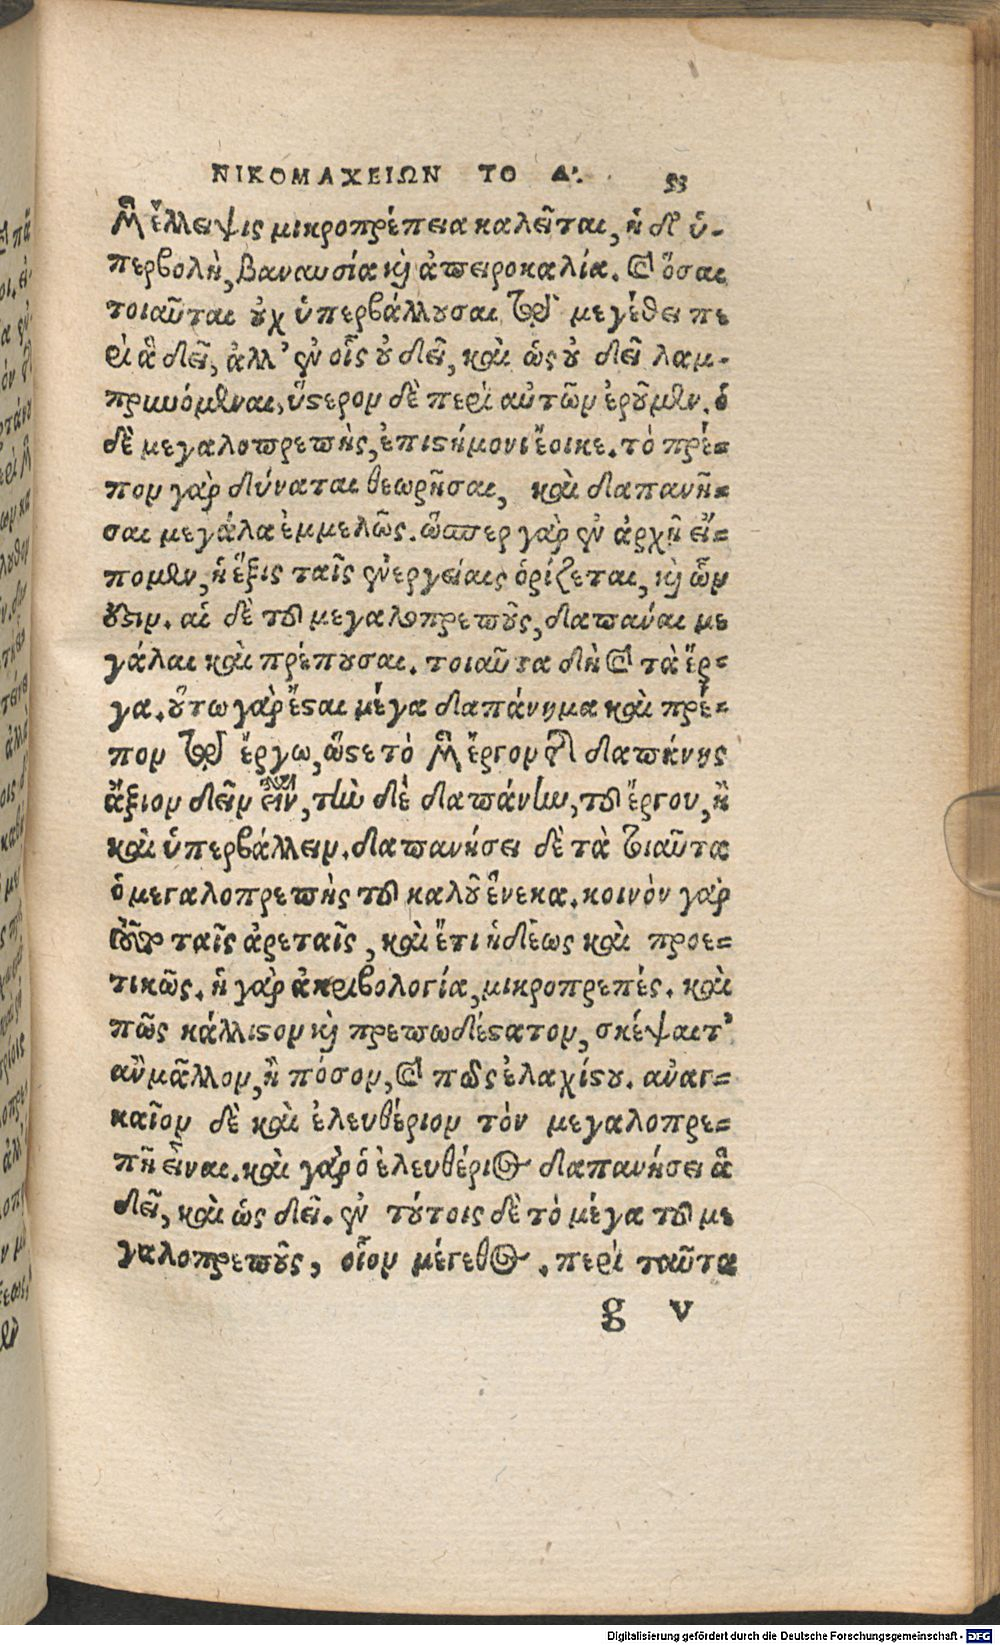 ΝΙΚΟΜΑΧΕΙΩΝ ΤΟ Δ'. 53
μὲν ἔλλειψις μικροπρέπεια καλεῖται, ἡ δ' ὑ-
περβολὴ, βαναυσία καὶ ἀπειροκαλία. καὶ ὅσαι
τοιαῦται οὐχ ὑπερβάλλουσαι τῷ μεγέθει πε
ρὶ ἃ δεῖ, ἀλλ' ἐν οἷς οὐ δεῖ, καὶ ὡς οὐ δεῖ λαμ-
πρυνόμεναι, ὕστερον δὲ περὶ αὐτῶν ἐροῦμεν. ὁ
δὲ μεγαλοπρεπὴς, ἐπιστήμονι ἔοικε. τὸ πρέ=
πον γὰρ δύναται θεωρῆσαι, καὶ δαπανῆ=
σαι μεγάλα ἐμμελῶς. ὥσπερ γὰρ ἐν ἀρχῇ εἴ=
πομεν, ἡ ἕξις ταῖς ἐνεργείαις ὁρίζεται, καὶ ὧν
ἐστιν. αἱ δὲ τοῦ μεγαλοπρεποῦς, δαπάναι με
γάλαι καὶ πρέπουσαι. τοιαῦτα δὴ καὶ τὰ ἔρ=
γα. οὕτω γὰρ ἔσται μέγα δαπάνημα καὶ πρέ=
πον τῷ ἔργω, ὥστε τὸ μὲν ἔργον τῆς δαπάνης
ἄξιον δεῖν εἶναι, τὴν δὲ δαπάνην, τοῦ ἔργου, ἢ
καὶ ὑπερβάλλειν. δαπανήσει δὲ τὰ τοιαῦτα
ὁ μεγαλοπρεπὴς τοῦ καλοῦ ἕνεκα. κοινὸν γὰρ
τοῦτο ταῖς ἀρεταῖς, καὶ ἔτι ἡδέως καὶ προε=
τικῶς. ἡ γὰρ ἀκριβολογία, μικροπρεπές. καὶ
πῶς κάλλιστον καὶ πρεπωδέστατον, σκέψαιτ'
ἂν μᾶλλον, ἢ πόσου, καὶ πῶς ἐλαχίστου. ἀναγ=
καῖον δὲ καὶ ἐλευθέριον τὸν μεγαλοπρε=
πῆ εἶναι. καὶ γὰρ ὁ ἐλευθέριος δαπανήσει ἃ
δεῖ, καὶ ὡς δεῖ. ἐν τούτοις δὲ τὸ μέγα τοῦ με
γαλοπρεποῦς, οἷον μέγεθος. περὶ ταῦτα
g v
Digitalisierung gefördert durch die Deutsche Forschungsgemeinschaft - DFG